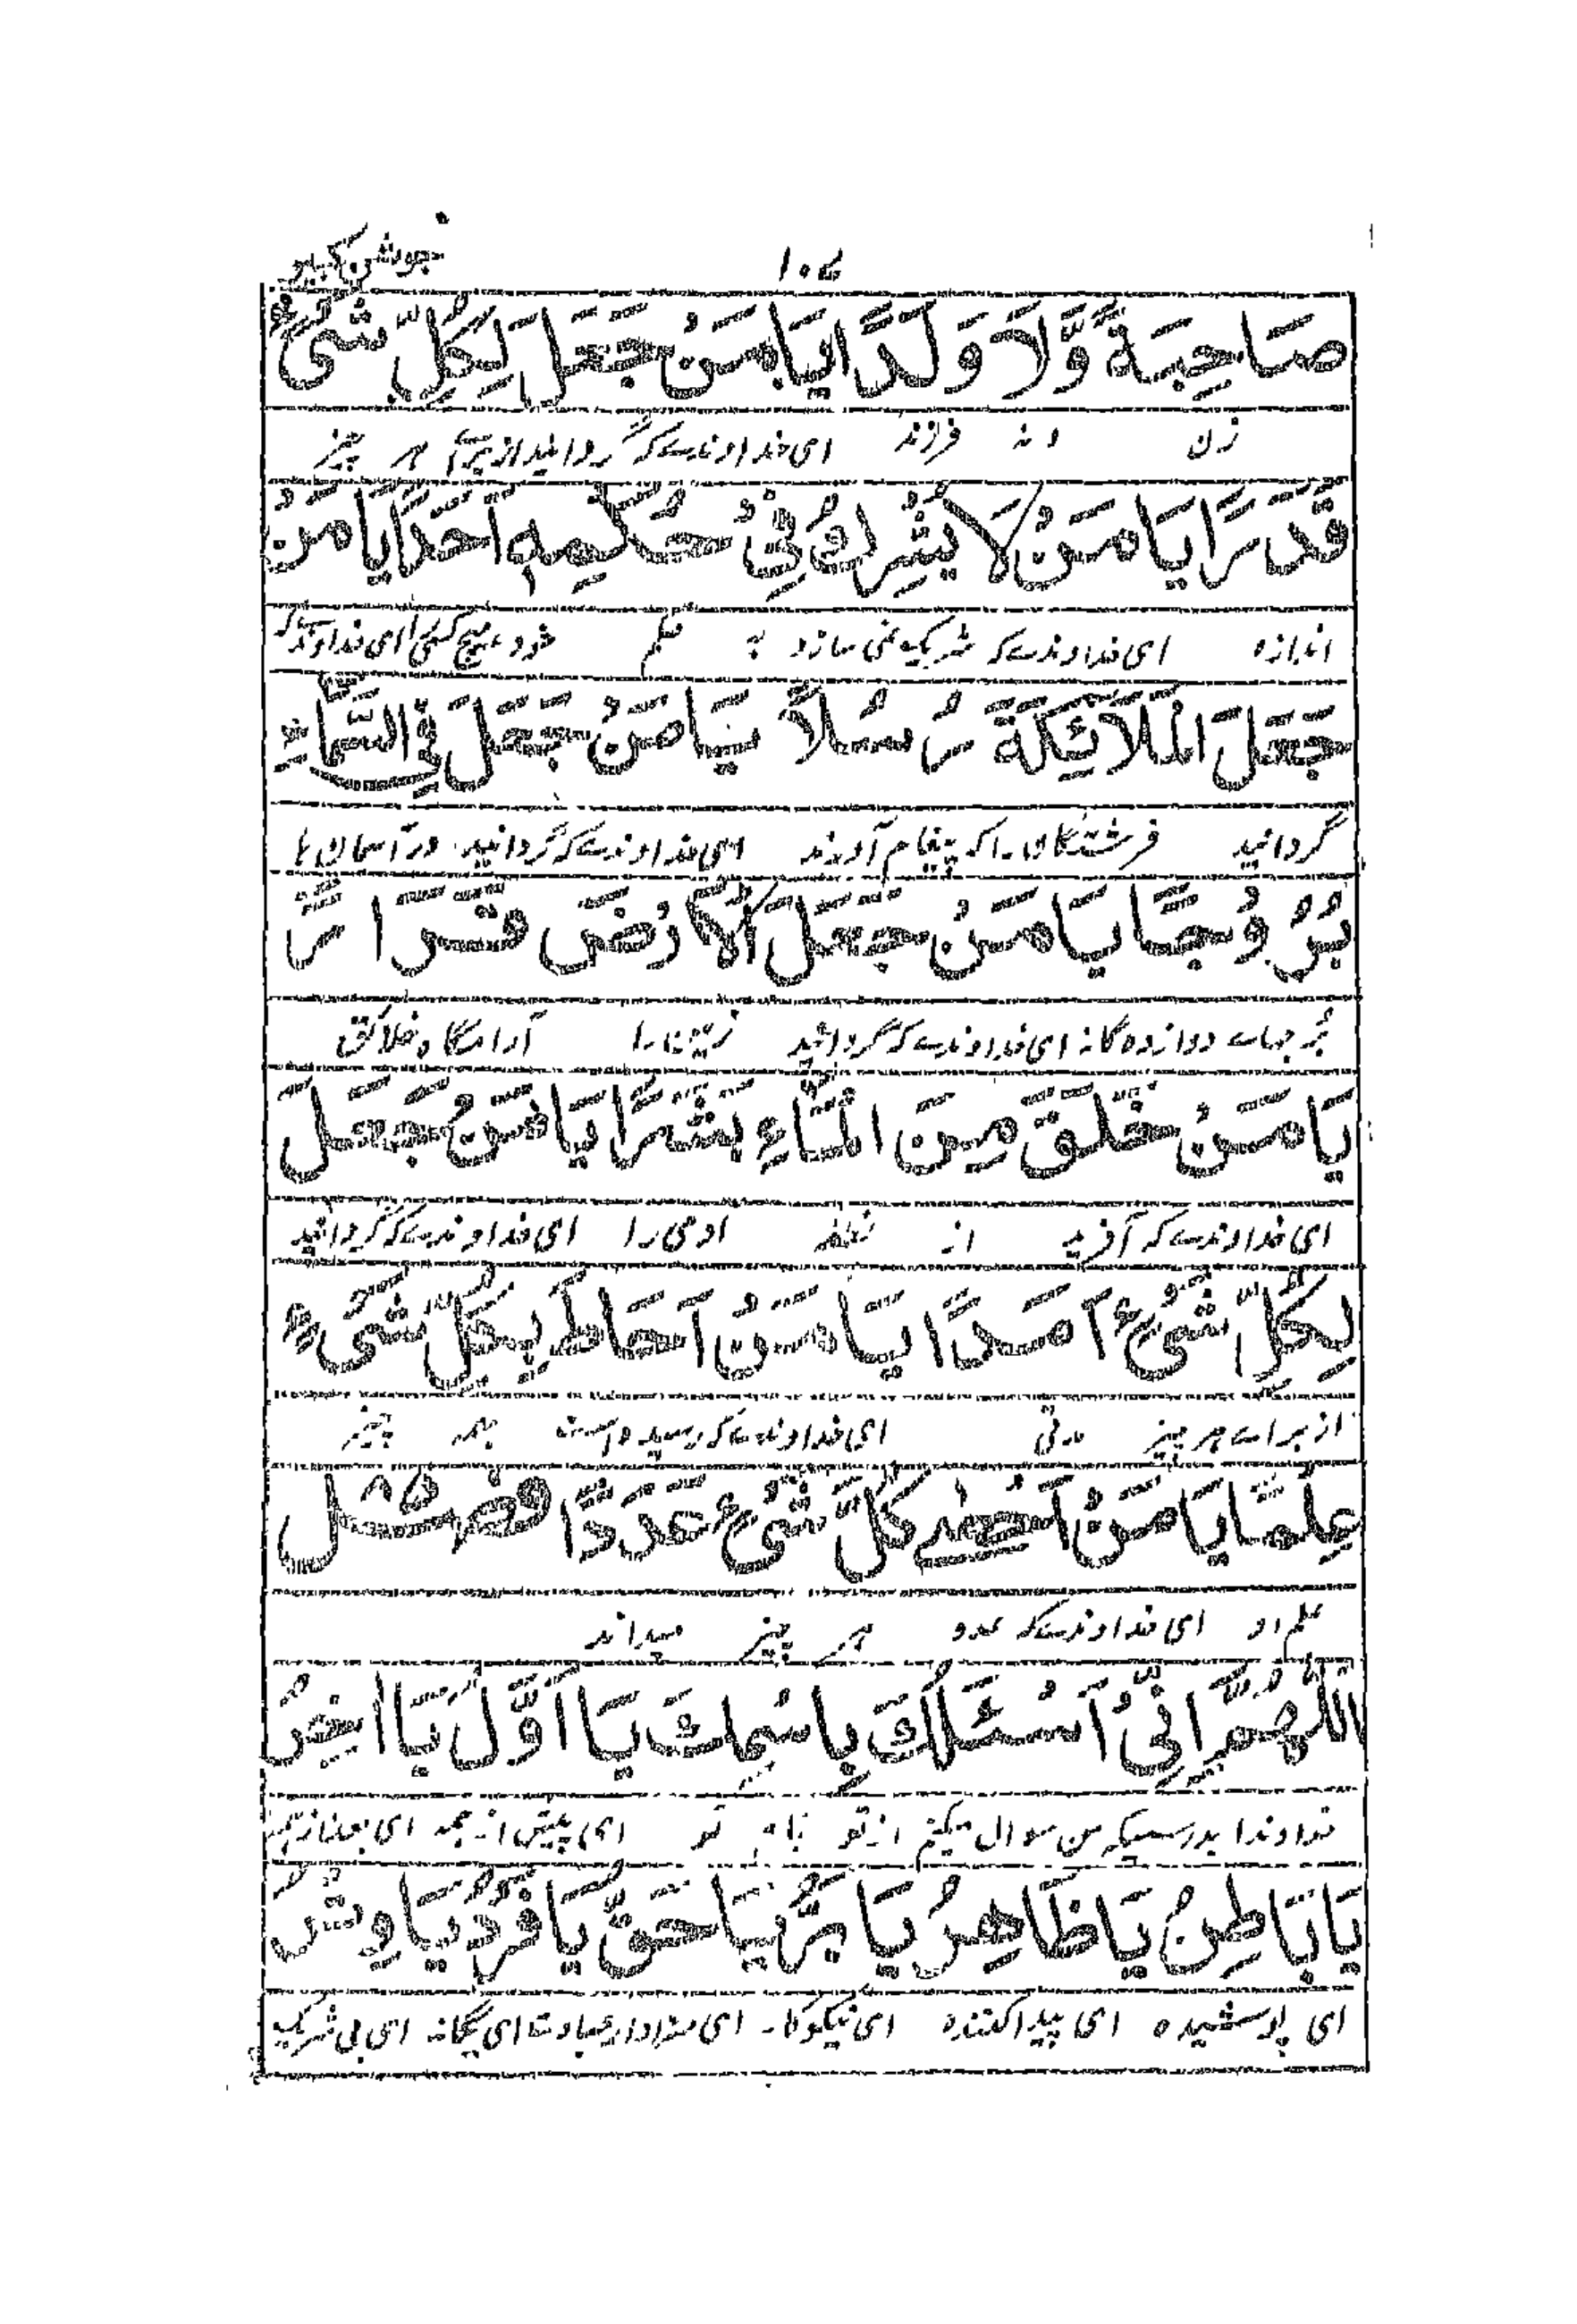 جوشن کبیر
صَاحِبَةً وَّلَا وَلَدًا یَا مَنْ جَعَلَ لِکُلِّ شَیْءٍ
زن و نه فرزند ای خداوندے که گردانید از برآ هر چیز
قَدَرًا یَا مَنْ لَا یُشْرِكُ فِیْ حُکْمِهٖ اَحَدًا یَا مَنْ
اندازه ای خداوندے که شریک نمی سازد به حکم خود هیچ کسی را ای خداوندے که
جَعَلَ الْمَلَآئِکَةَ رُسُلًا یَا مَنْ جَعَلَ فِی السَّمَآءِ
گردانید فرشتگان را که پیغام آورند ای خداوندے که گردانید در آسمان ها
بُرُوْجًا یَا مَنْ جَعَلَ الْاَرْضَ قَرَارًا
برجهاے دوازده گانه ای خداوندے که گردانید زمین را آرامگاه خلائق
یَا مَنْ خَلَقَ مِنَ الْمَآءِ بَشَرًا یَا مَنْ جَعَلَ
ای خداوندے که آفرید از نطفه ادمی را ای خداوندے که گردانید
لِکُلِّ شَیْءٍ اَمَدًا یَا مَنْ اَحَاطَ بِکُلِّ شَیْءٍ
از براے هر چیز مدتی ای خداوندے که رسیده است بهمه چیز
عِلْمًا یَا مَنْ اَحْصٰی کُلَّ شَیْءٍ عَدَدًا فصل
علم او ای خداوندے که عدد هر چیز میداند
اَللّٰهُمَّ اِنِّیْ اَسْئَلُكَ بِاسْمِكَ یَا اَوَّلُ یَا اٰخِرُ
خداوندا بدرستیکه من سوال میکنم از تو بنام تو ای پیش از همه ای بعد از همه
یَا بَاطِنُ یَا ظَاهِرُ یَا بَرُّ یَا حَقُّ یَا فَرْدُ یَا وِتْرُ
ای پوشیده ای پیدا کننده ای نیکوکار ای سزاوار عبادت ای یگانه ای بی شریک